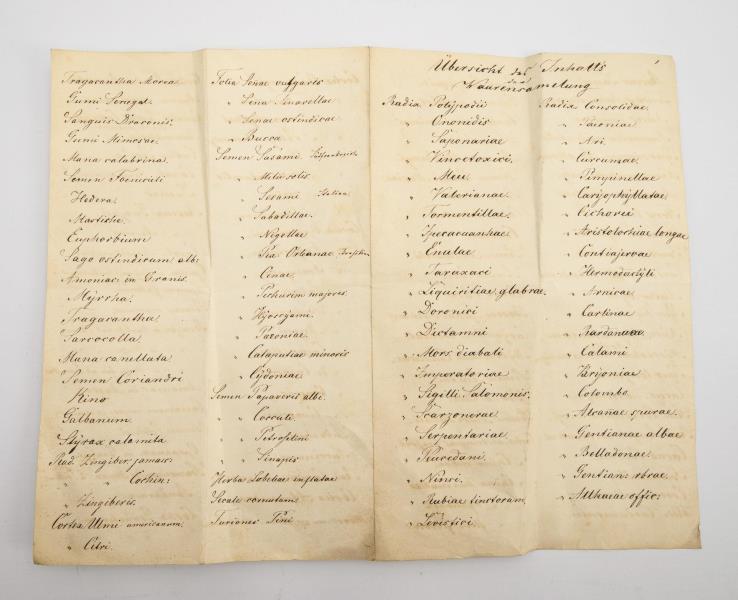 Übersicht des Inhalts
Waarensamelung
Tragacantha Morea
Gumi Senegal.
Sanguis Draconis.
Gumi Mimosae
Mana calabrina.
Semen Foeniculi
Hedera.
Mastiche.
Euphorbium
Sago ostindicum alb:
Amoniac: in Granis.
Myrrha.
Tragacantha.
Sarcocolla.
Mana canellata
Semen Coriandri
Kino
Galbanum
Styrax calamita
Rad. Zingiber: jamaic:
" " Cochin:
" Zingiberis.
Cortex Ulmi americanum.
" Citri.
Folia Senae vulgaris
" Sena
" Senae ostindicae
" Bucco
Semen Sesami
" Melissotis
" Sesami Italien
" Sabadillae.
" Nigellae
" Orleanae
" Cinae.
" Pichurim majores.
" Hyoscyami.
" Paeoniae
" Cataputiae minoris
" Cydoniae.
Semen Papaveris albi.
" Cocculi.
" Petrosilini
" Sinapis
Herba Lobeliae inflatae
Secale cornutum.
Turiones Pini
Radix Polypodii
" Ononidis
" Saponariae
" Vincetoxici.
" Meu.
" Valerianae.
" Tormentillae.
" Ipecacuanhae.
" Enulae
" Taraxaci
" Liquiritiae glabrae.
" Doronici
" Dictamni
" Mors diaboli
" Imperatoriae
" Sigilli Salomonis.
" Scarzonerae
" Serpentariae
" Peucedani.
" Ninsi.
" Rubiae tinctorum.
" Levistici.
Radix Consolidae.
" Paeoniae
" Ari.
" Curcumae.
" Pimpinellae
" Caryophyllatae.
" Cichorei
" Aristolochiae longae
" Contrajervae
" Hermodactyli
" Arnicae
" Carlinae
" Bardanae
" Calami
" Colombo.
" Alcañae spurae.
" Gentianae albae
" Belladonae.
" Gentian: rbrae.
" Althaeae offic: